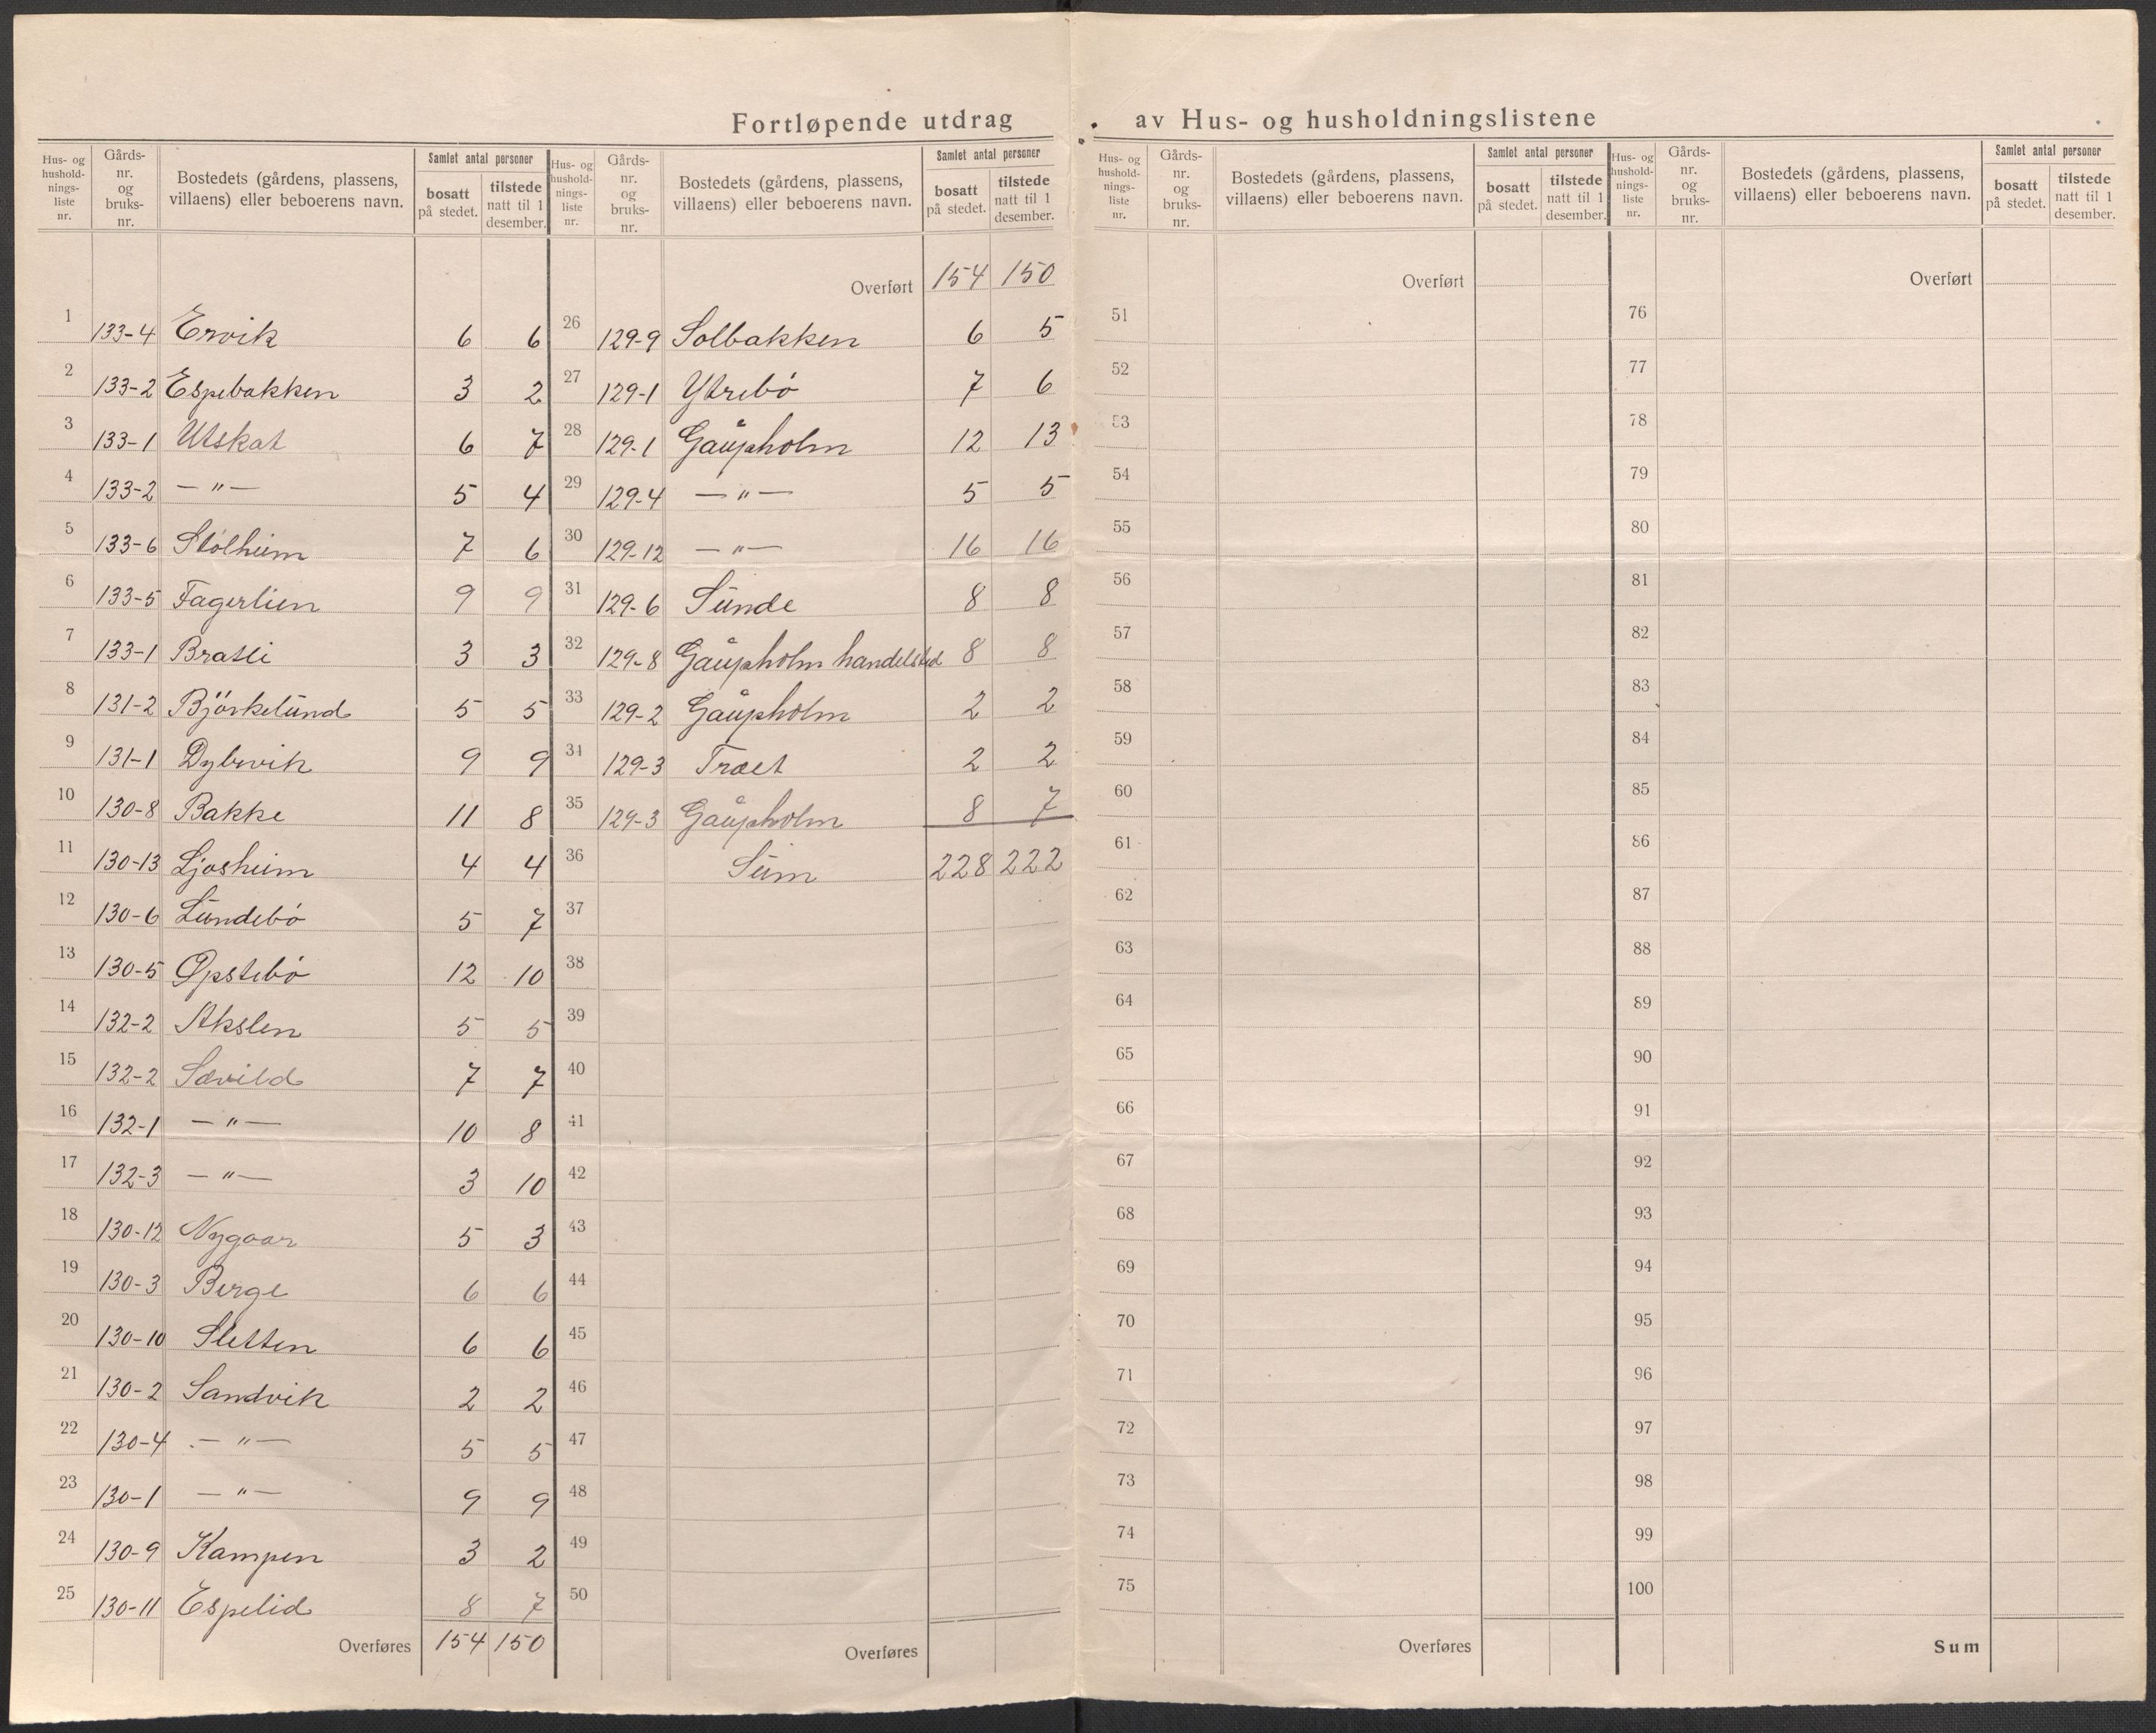 Fortløpende utdrag av Hus- og husholdningslistene
Hus- og hushold- nings- liste nr. | Gårds- nr. og bruks- nr. | Bostedets (gårdens, plassens, villaens) eller beboerens navn. | Samlet antal personer | bosatt på stedet. | tilstede natt til 1 desember.
1 133-4 Ervik 6 6
2 133-2 Espebakken 3 2
3 133-1 Utskot 6 7
4 133-2 —"— 5 4
5 133-6 Stølheim 7 6
6 133-5 Fagerlien 9 9
7 133-1 Bratli 3 3
8 131-2 Björkelund 5 5
9 131-1 Dybvik 9 9
10 130-8 Bakke 11 8
11 130-13 Ljosheim 4 4
12 130-6 Lundebö 5 7
13 130-5 Opstebö 12 10
14 132-2 Akslen 5 5
15 132-2 Sævild 7 7
16 132-1 —"— 10 8
17 132-3 —"— 3 10
18 130-12 Nygaar 5 3
19 130-3 Berge 6 6
20 130-10 Sletten 6 6
21 130-2 Sandvik 2 2
22 130-4 —"— 5 5
23 130-1 —"— 9 9
24 130-9 Kampen 3 2
25 130-11 Espelid 8 7
Overføres 154 150
Hus- og hushold- nings- liste nr. | Gårds- nr. og bruks- nr. | Bostedets (gårdens, plassens, villaens) eller beboerens navn. | Samlet antal personer | bosatt på stedet. | tilstede natt til 1 desember.
Overført 154 150
26 129-9 Solbakken 6 5
27 129-1 Ytrebö 7 6
28 129-1 Gåupholm 12 13
29 129-4 —"— 5 5
30 129-12 —"— 16 16
31 129-6 Sunde 8 8
32 129-8 Gåupholm handelsted 8 8
33 129-2 Gåupholm 2 2
34 129-3 Træet 2 2
35 129-3 Gåupholm 8 7
36 Sum 228 222
37
38
39
40
41
42
43
44
45
46
47
48
49
50
Overføres
Hus- og hushold- nings- liste nr. | Gårds- nr. og bruks- nr. | Bostedets (gårdens, plassens, villaens) eller beboerens navn. | Samlet antal personer | bosatt på stedet. | tilstede natt til 1 desember.
Overført
51
52
53
54
55
56
57
58
59
60
61
62
63
64
65
66
67
68
69
70
71
72
73
74
75
Overføres
Hus- og hushold- nings- liste nr. | Gårds- nr. og bruks- nr. | Bostedets (gårdens, plassens, villaens) eller beboerens navn. | Samlet antal personer | bosatt på stedet. | tilstede natt til 1 desember.
Overført
76
77
78
79
80
81
82
83
84
85
86
87
88
89
90
91
92
93
94
95
96
97
98
99
100
Sum